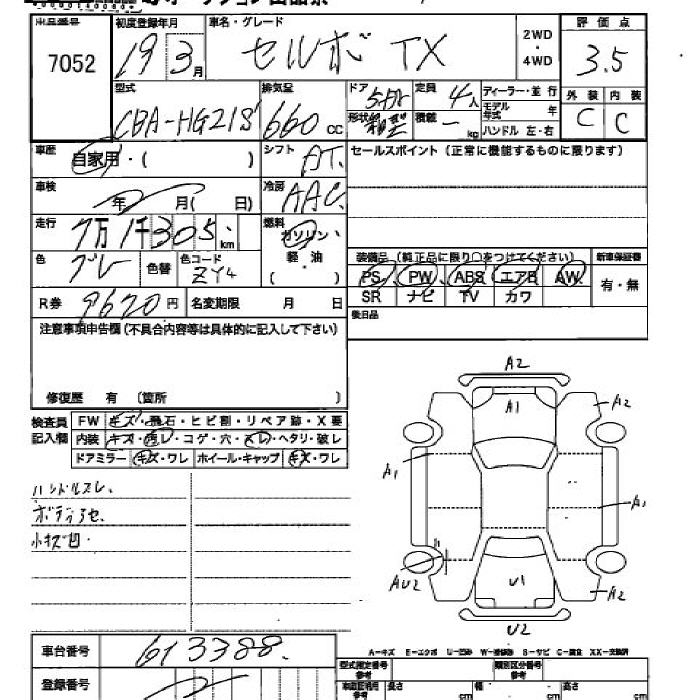 出品番号
7052
初度登録年月
19 3月
車名・グレード
セルボ TX
2WD
・
4WD
評価点
3.5
型式
CBA-HG21S
排気量
660 cc
ドア
5ドア
形状
箱型
定員
4人
積載
ー kg
ディーラー・並行
モデル年式 年
ハンドル 左・右
外装 内装
C C
車歴
自家用・( )
シフト
AT.
セールスポイント(正常に機能するものに限ります)
車検
年 月( 日)
冷房
AAC
走行
7万1千305 km
燃料
ガソリン・
軽 油
( )
色
グレー
色替
色コード
ZY4
装備品(純正品に限り○をつけてください)
新車保証書
PS PW ABS エアB AW
SR ナビ TV カワ
有・無
R券
9620円
名変期限 月 日
後日品
注意事項申告欄(不具合内容等は具体的に記入して下さい)
修復歴 有 (箇所 )
検査員
記入欄
FW キズ・飛石・ヒビ割・リペア跡・X要
内装 キズ・汚レ・コゲ・穴・スレ・ヘタリ・破レ
ドアミラー キズ・ワレ ホイール・キャップ キズ・ワレ
ハンドルスレ.
ボディアセ.
小キズ凹.
A2
A1
A2
A1
A1
AU2
U1
A2
U2
A-キズ E-エクボ U-凹み W-補修跡 S-サビ C-腐食 XX-交換済
車台番号
613388.
登録番号
型式指定番号
参考
類別区分番号
参考
車庫証明用
参考
長さ cm
幅 cm
高さ cm